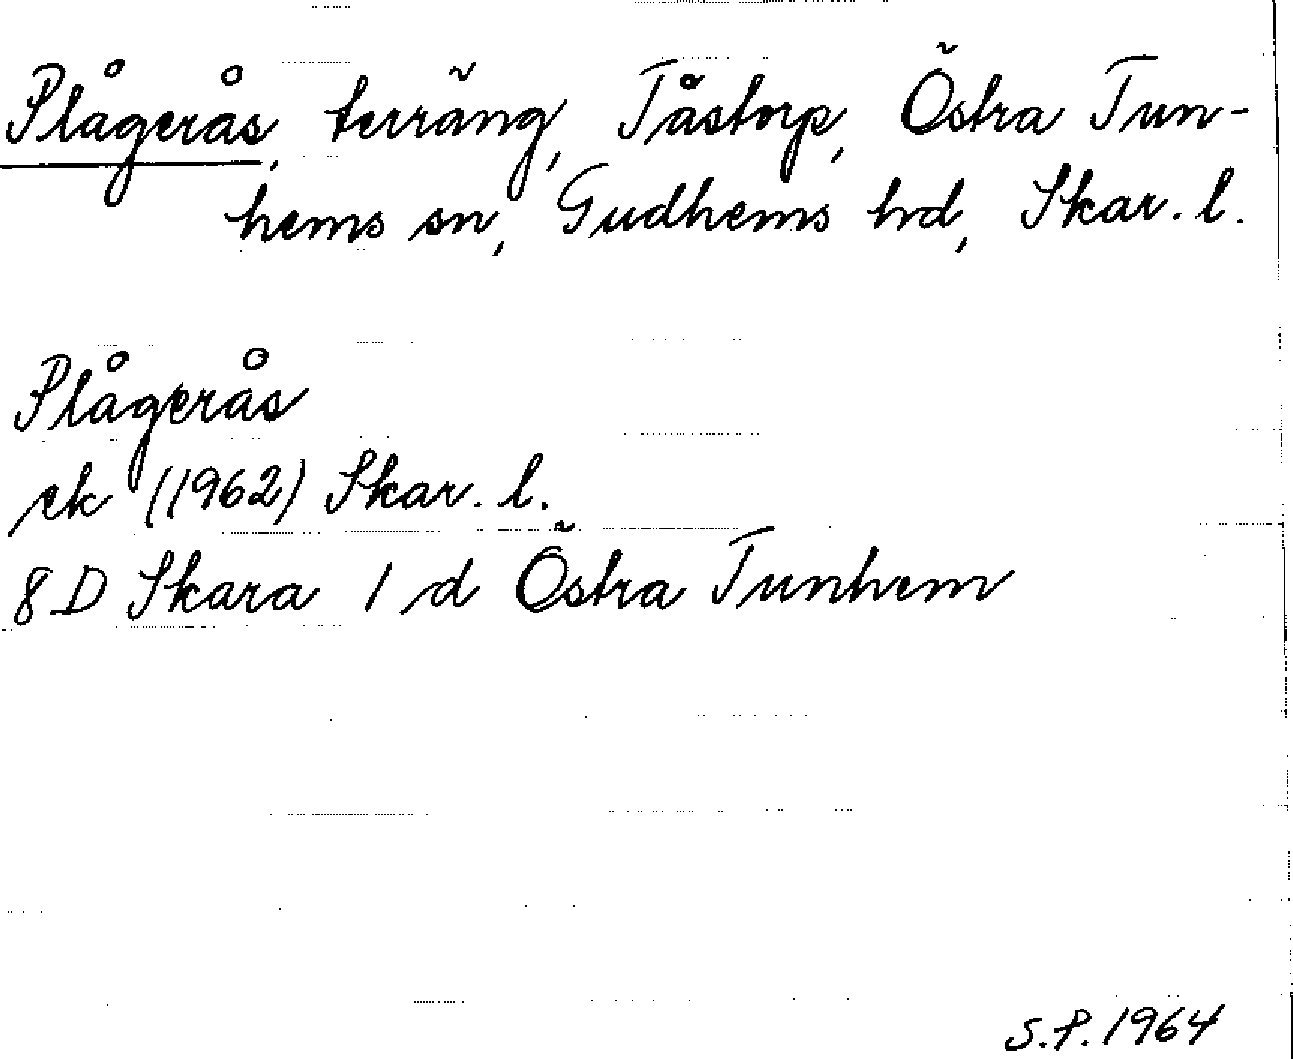 Plågerås, terräng, Tåstorp, Östra Tun-
hems sn, Gudhems hd, Skar. l.
Plågerås
ek (1962) Skar. l.
8 D Skara 1 d Östra Tunhem
S.P. 1964